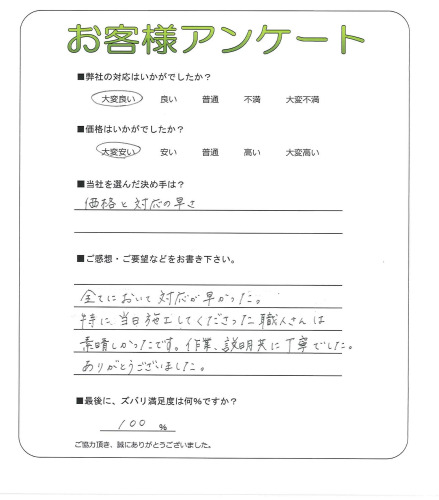 お客様アンケート
■弊社の対応はいかがでしたか？
大変良い 良い 普通 不満 大変不満
■価格はいかがでしたか？
大変安い 安い 普通 高い 大変高い
■当社を選んだ決め手は？
価格と対応の早さ
■ご感想・ご要望などをお書き下さい。
全てにおいて対応が早かった。
特に、当日施工してくださった職人さんは
素晴しかったです。作業、説明共に丁寧でした。
ありがとうございました。
■最後に、ズバリ満足度は何%ですか？
100 %
ご協力頂き、誠にありがとうございました。